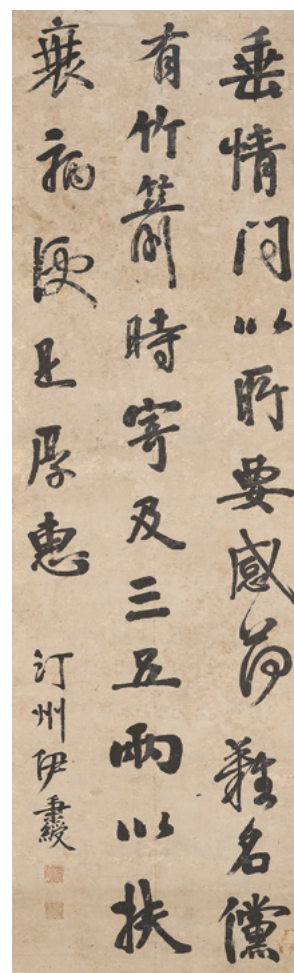 垂情問以所要感荷難名儻
有竹箭時寄及三五兩以扶
衰病便是厚惠
汀州伊秉綬